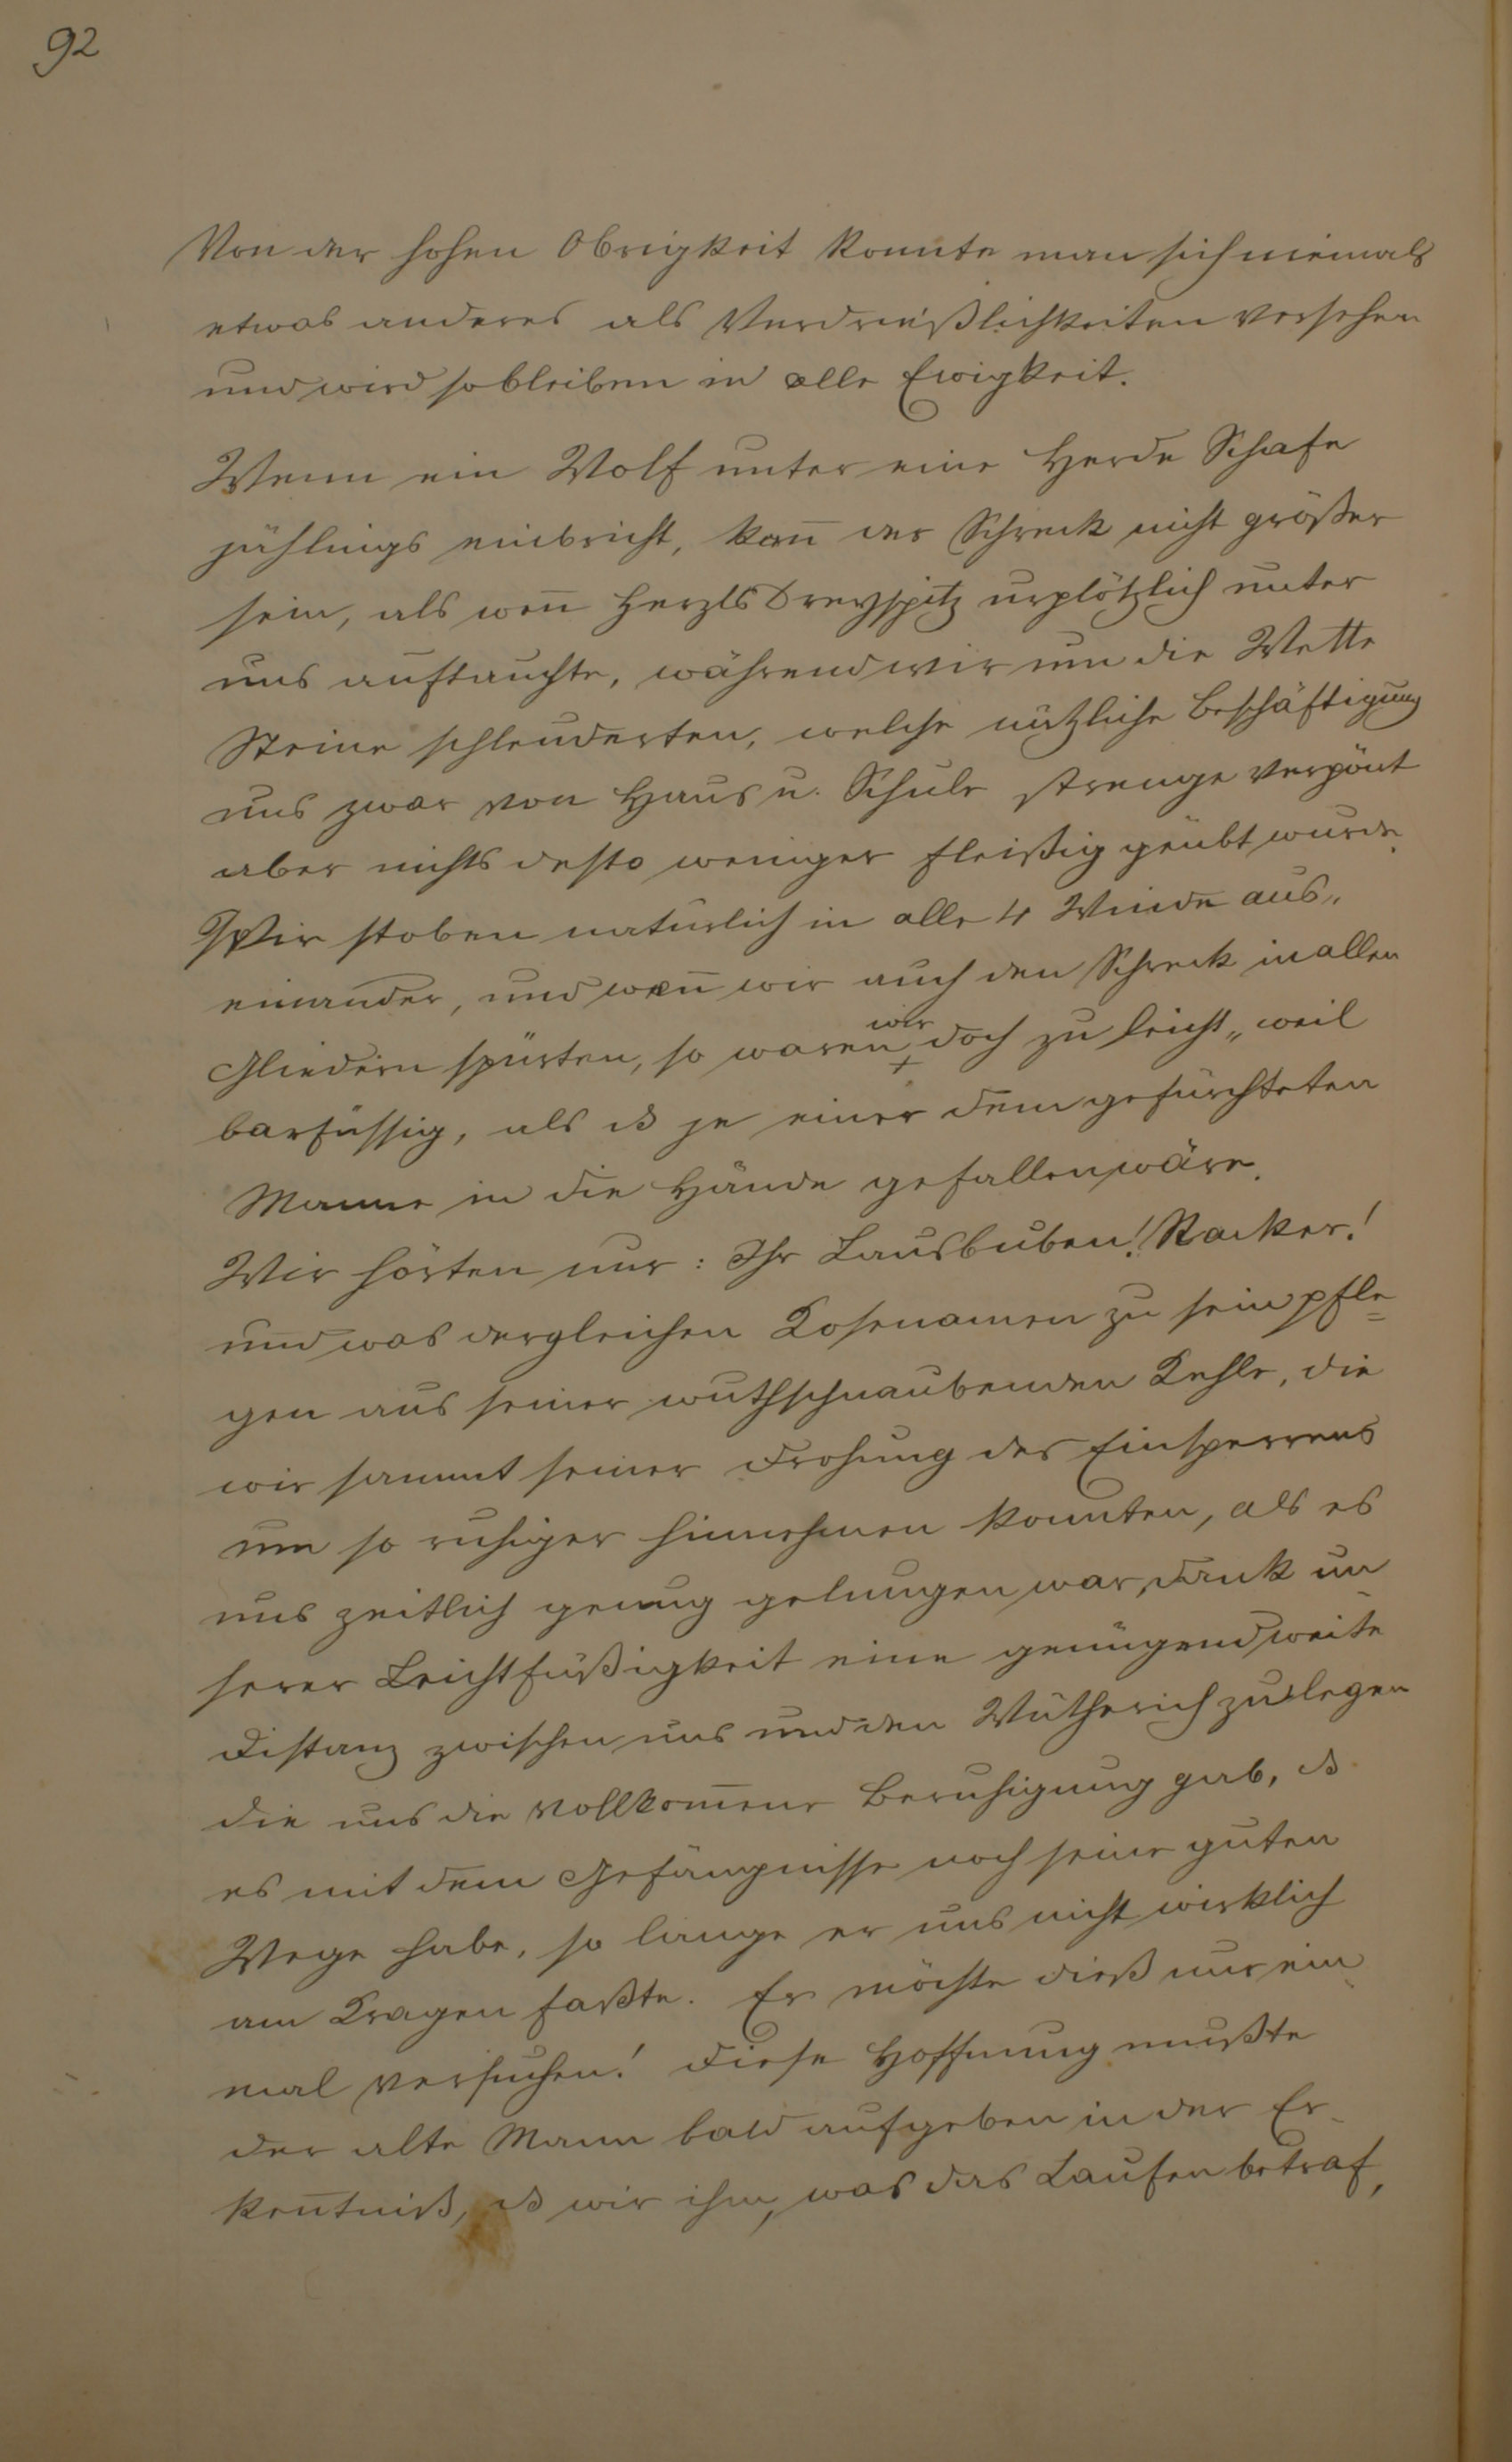 92
Von der hohen Obrigkeit konnte man sich niemals
etwas anderes als Verdrießlichkeiten versehen
und wird so bleiben in alle Ewigkeit.
Wenn ein Wolf unter eine Herde Schafe
jählings einbricht, kan̄ der Schreck nicht größer
sein, als wen̄ Herzls Dreyspitz urplötzlich unter
uns auftauchte, während wir um die Wette
Steine schleuderten, welche nützliche Beschäftigung
uns zwar von Haus u. Schule strenge verpönt
aber nichts desto weniger fleißig geübt wurde.
Wir stoben natürlich in alle 4 Winde aus„
einander, und wen̄ wir auch den Schreck in allen
Gliedern spürten, so waren wir doch zu leicht„ weil
barfüssig, als ß je einer dem gefürchteten
Manne in die Hände gefallen wäre.
Wir hörten nur: Ihr Lausbuben! Racker!
und was dergleichen Kosenamen zu sein pfle=
gen aus seiner wuthschnaubenden Kehle, die
wir sammt seiner Drohung des Einsperrens
um so ruhiger hinnehmen konnten, als es
uns zeitlich genug gelungen war, dank un-
serer Leichtfüßigkeit eine genügend weite
Distanz zwischen uns und den Wütherich zu legen
die uns die vollkom̄ene Beruhigung gab, ß
es mit dem Gefängnisse noch seine guten
Wege habe, so lange er uns nicht wirklich
am Kragen faßte. Er möchte dieß nur ein-
mal versuchen! Diese Hoffnung mußte
der alte Mann bald aufgeben in der Er-
ken̄tniß, ß wir ihm, was das Laufen betraf,